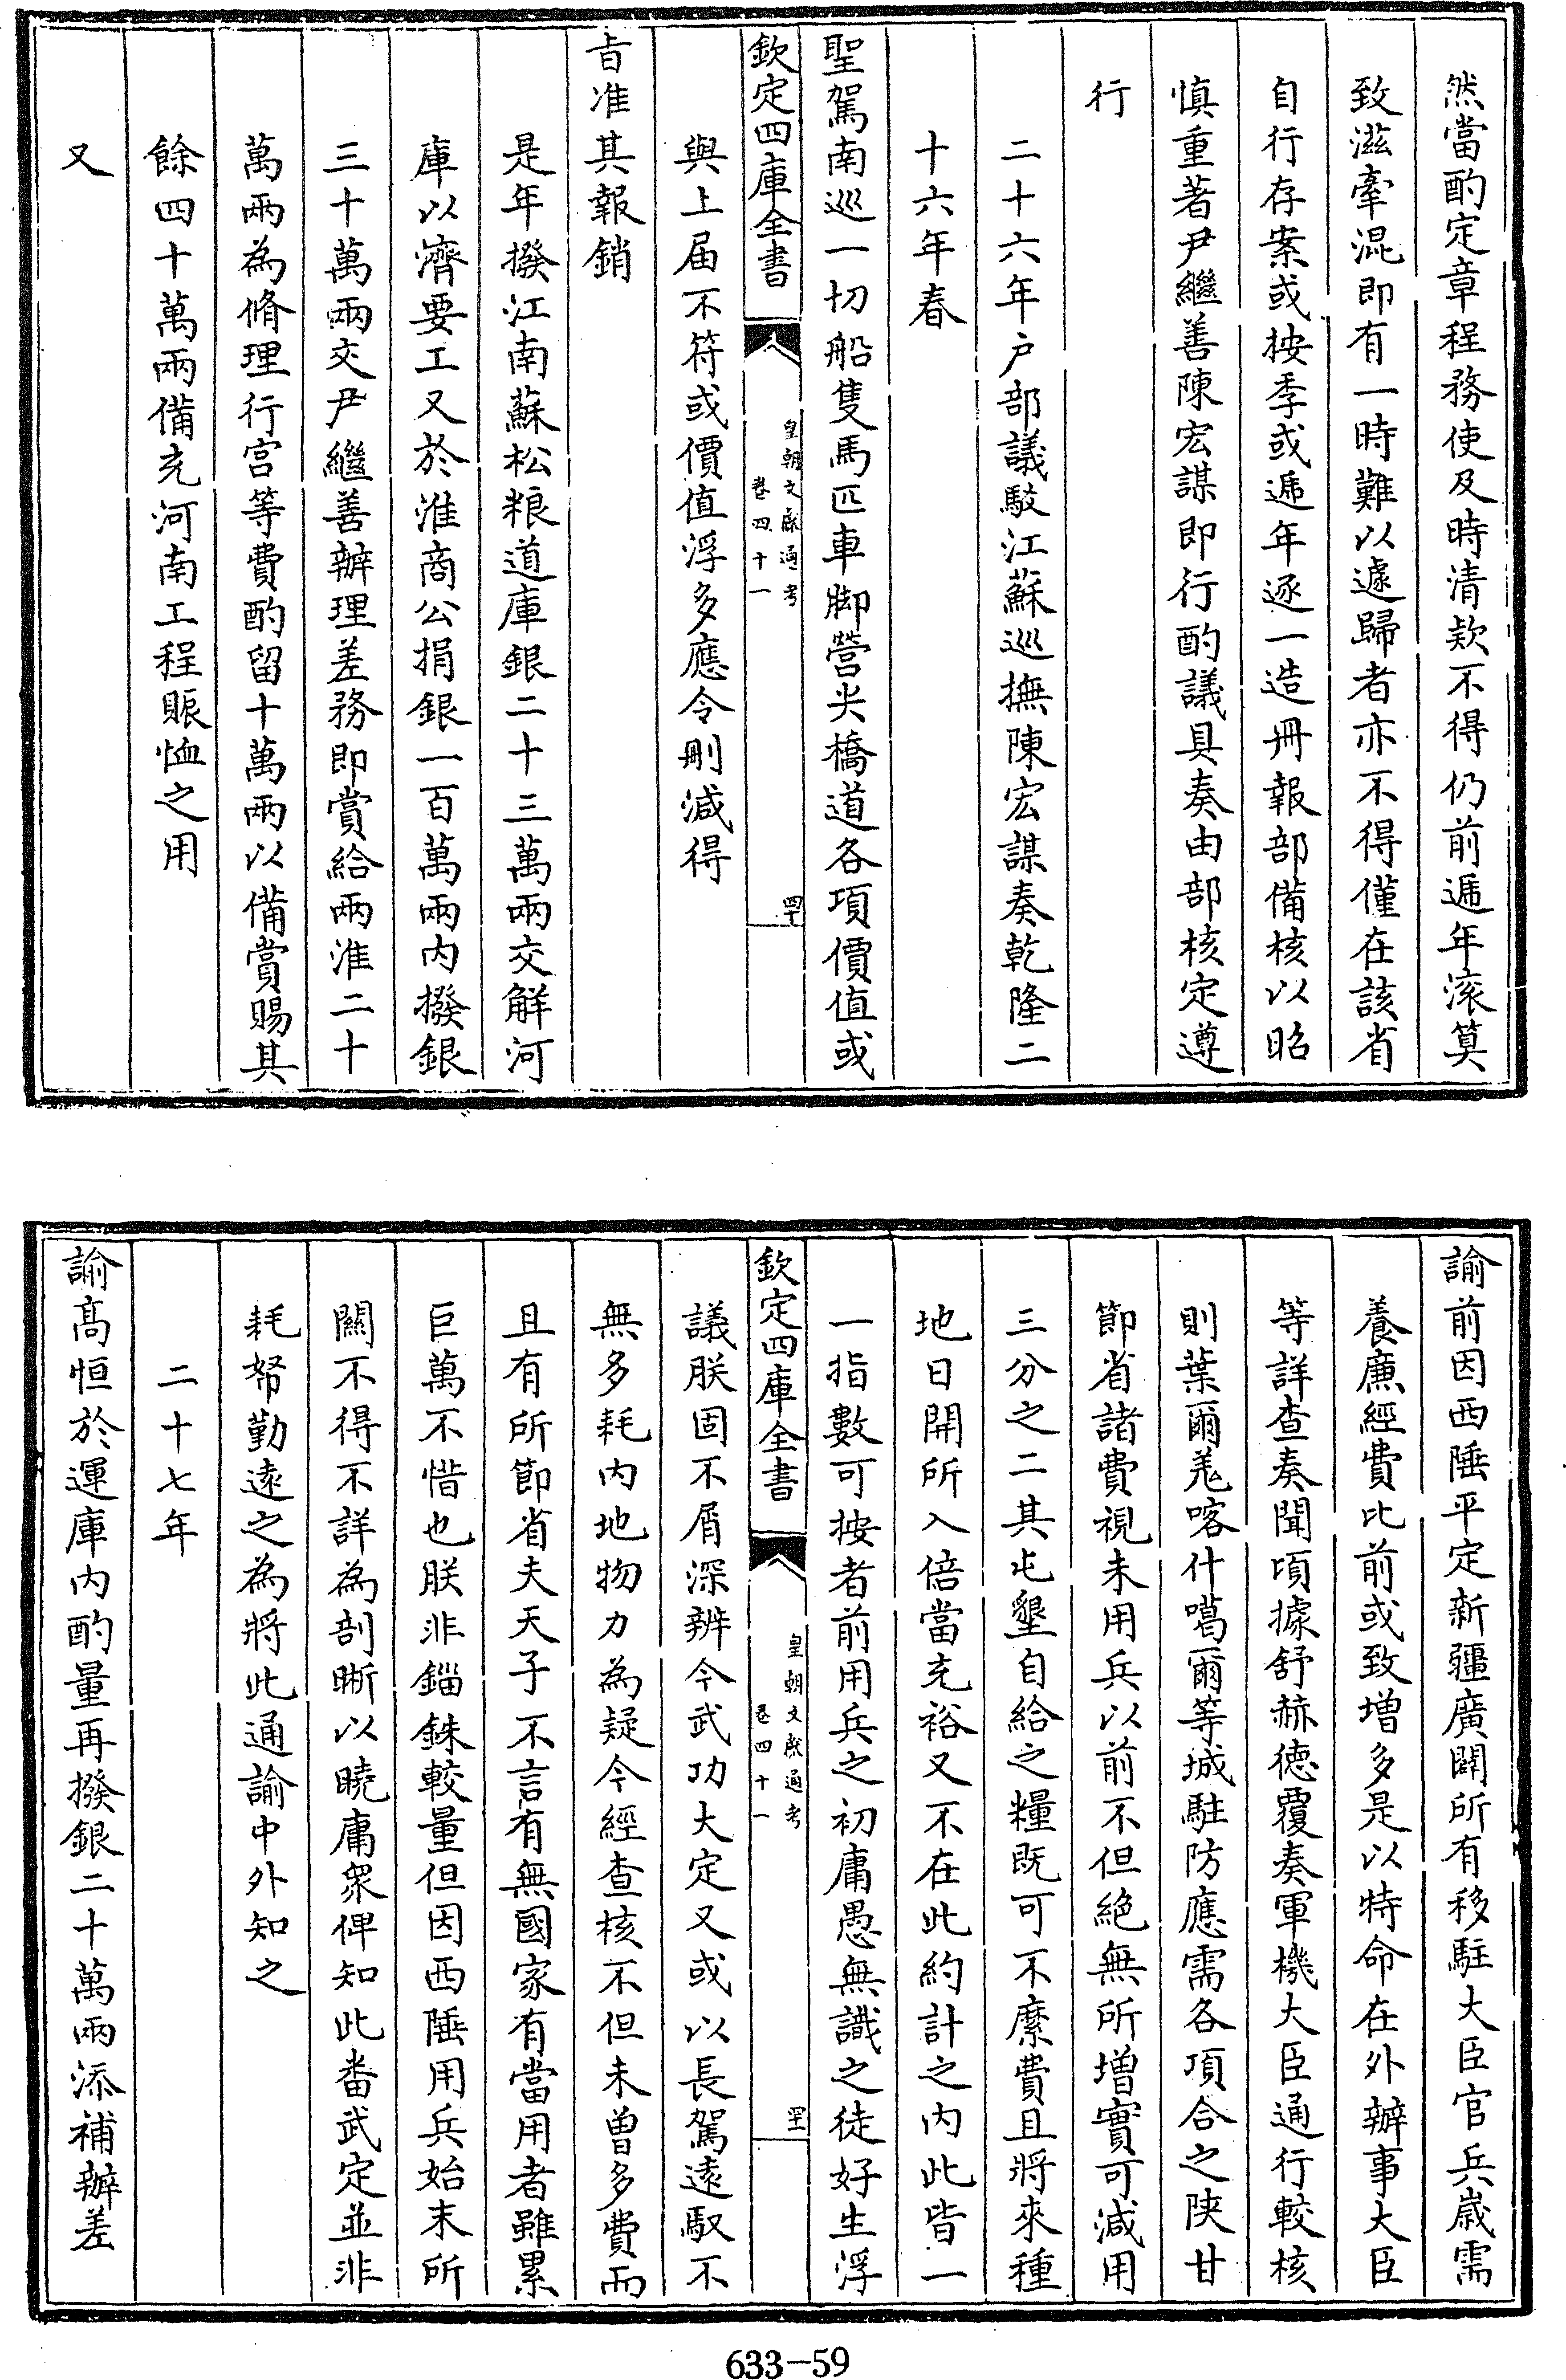 然當酌定章程務使及時清款不得仍前遞年滾算
致滋牽混即有一時難以遽歸者亦不得僅在該省
自行存案或按季或遞年逐一造冊報部備核以昭
慎重著尹繼善陳宏謀即行酌議具奏由部核定遵
行
二十六年户部議駮江蘇巡撫陳宏謀奏乾隆二
十六年春
聖駕南巡一切船隻馬匹車脚營尖橋道各項價值或
欽定四庫全書
皇朝文獻通考
卷四十一
四十
與上届不符或價值浮多應令刪減得
旨准其報銷
是年撥江南蘇松粮道庫銀二十三萬兩交解河
庫以濟要工又於淮商公捐銀一百萬兩内撥銀
三十萬兩交尹繼善辦理差務即賞給兩淮二十
萬兩為脩理行宫等費酌留十萬兩以備賞賜其
餘四十萬兩備充河南工程賑恤之用
又
諭前因西陲平定新疆廣闢所有移駐大臣官兵嵗需
養廉經費比前或致增多是以特命在外辦事大臣
等詳查奏聞頃據舒赫德覆奏軍機大臣通行較核
則葉爾羌喀什噶爾等城駐防應需各項合之陝甘
節省諸費視未用兵以前不但絶無所增實可減用
三分之二其屯墾自給之糧既可不縻費且將來種
地日開所入倍當充裕又不在此約計之内此皆一
一指數可按者前用兵之初庸愚無識之徒好生浮
欽定四庫全書
皇朝文獻通考
卷四十一
四十一
議朕固不屑深辨今武功大定又或以長駕遠馭不
無多耗内地物力為疑今經查核不但未曽多費而
且有所節省夫天子不言有無國家有當用者雖累
巨萬不惜也朕非錙銖較量但因西陲用兵始末所
關不得不詳為剖晰以曉庸衆俾知此畨武定並非
耗帑勤遠之為將此通諭中外知之
二十七年
諭髙恒於運庫内酌量再撥銀二十萬兩添補辦差
633-59